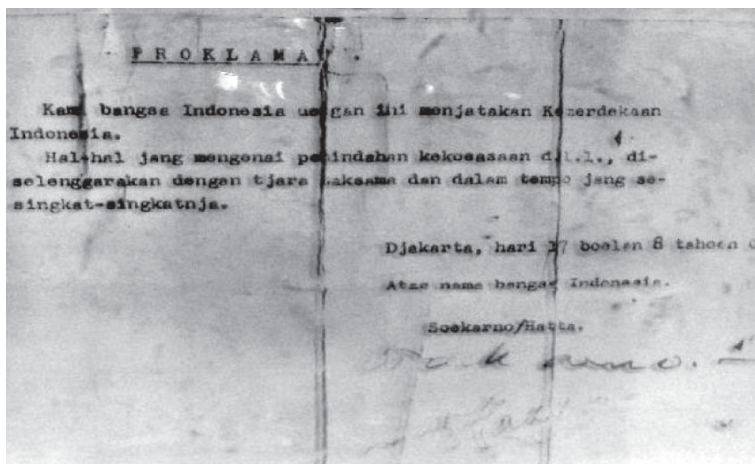 PROKLAMA
Kami bangsa Indonesia dengan ini menjatakan Kemerdekaan
Indonesia.
Hal-hal jang mengenai pemindahan kekoeasaan d.l.l., di-
selenggarakan dengan tjara saksama dan dalam tempo jang se-
singkat-singkatnja.
Djakarta, hari 17 boelan 8 tahoen 0
Atas nama bangsa Indonesia.
Soekarno/Hatta.